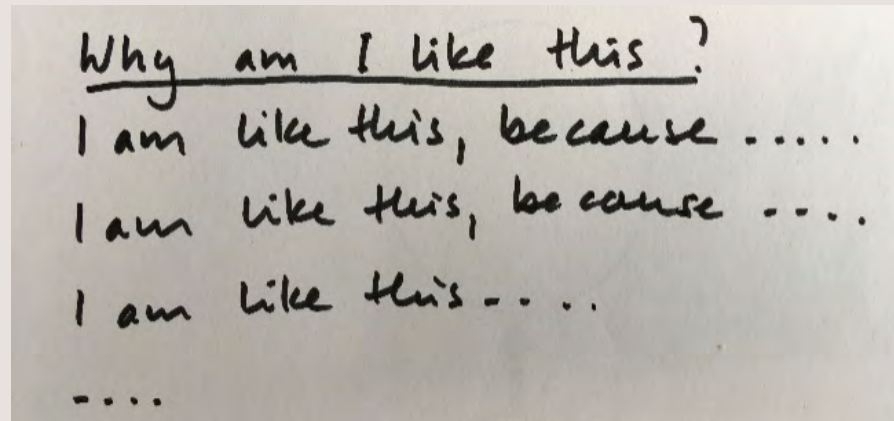 Why am I like this?
I am like this, because .....
I am like this, because ....
I am like this ....
....